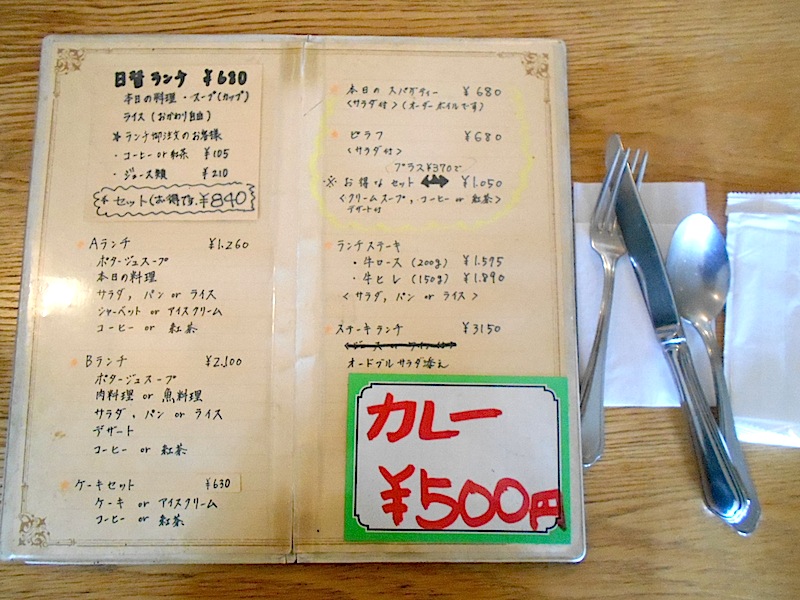 日替ランチ ¥680
本日の料理・スープ(カップ)
ライス(おかわり自由)
*ランチ御注文のお客様
・コーヒー or 紅茶 ¥105
・ジュース類 ¥210
*セット(お得です。¥840
Aランチ ¥1.260
ポタージュスープ
本日の料理
サラダ, パン or ライス
シャーベット or アイスクリーム
コーヒー or 紅茶
Bランチ ¥2,100
ポタージュスープ
肉料理 or 魚料理
サラダ, パン or ライス
デザート
コーヒー or 紅茶
ケーキセット ¥630
ケーキ or アイスクリーム
コーヒー or 紅茶
本日のスパゲティー ¥680
<サラダ付>(オーダーボイルです)
ピラフ ¥680
<サラダ付>
プラス¥370で
※お得なセット ¥1.050
<クリームスープ, コーヒー or 紅茶>
デザート付
ランチステーキ
・牛ロース (200g) ¥1.575
・牛ヒレ (150g) ¥1.890
<サラダ, パン or ライス>
ステーキランチ ¥3150
オードブルサラダ添え
カレー
¥500円